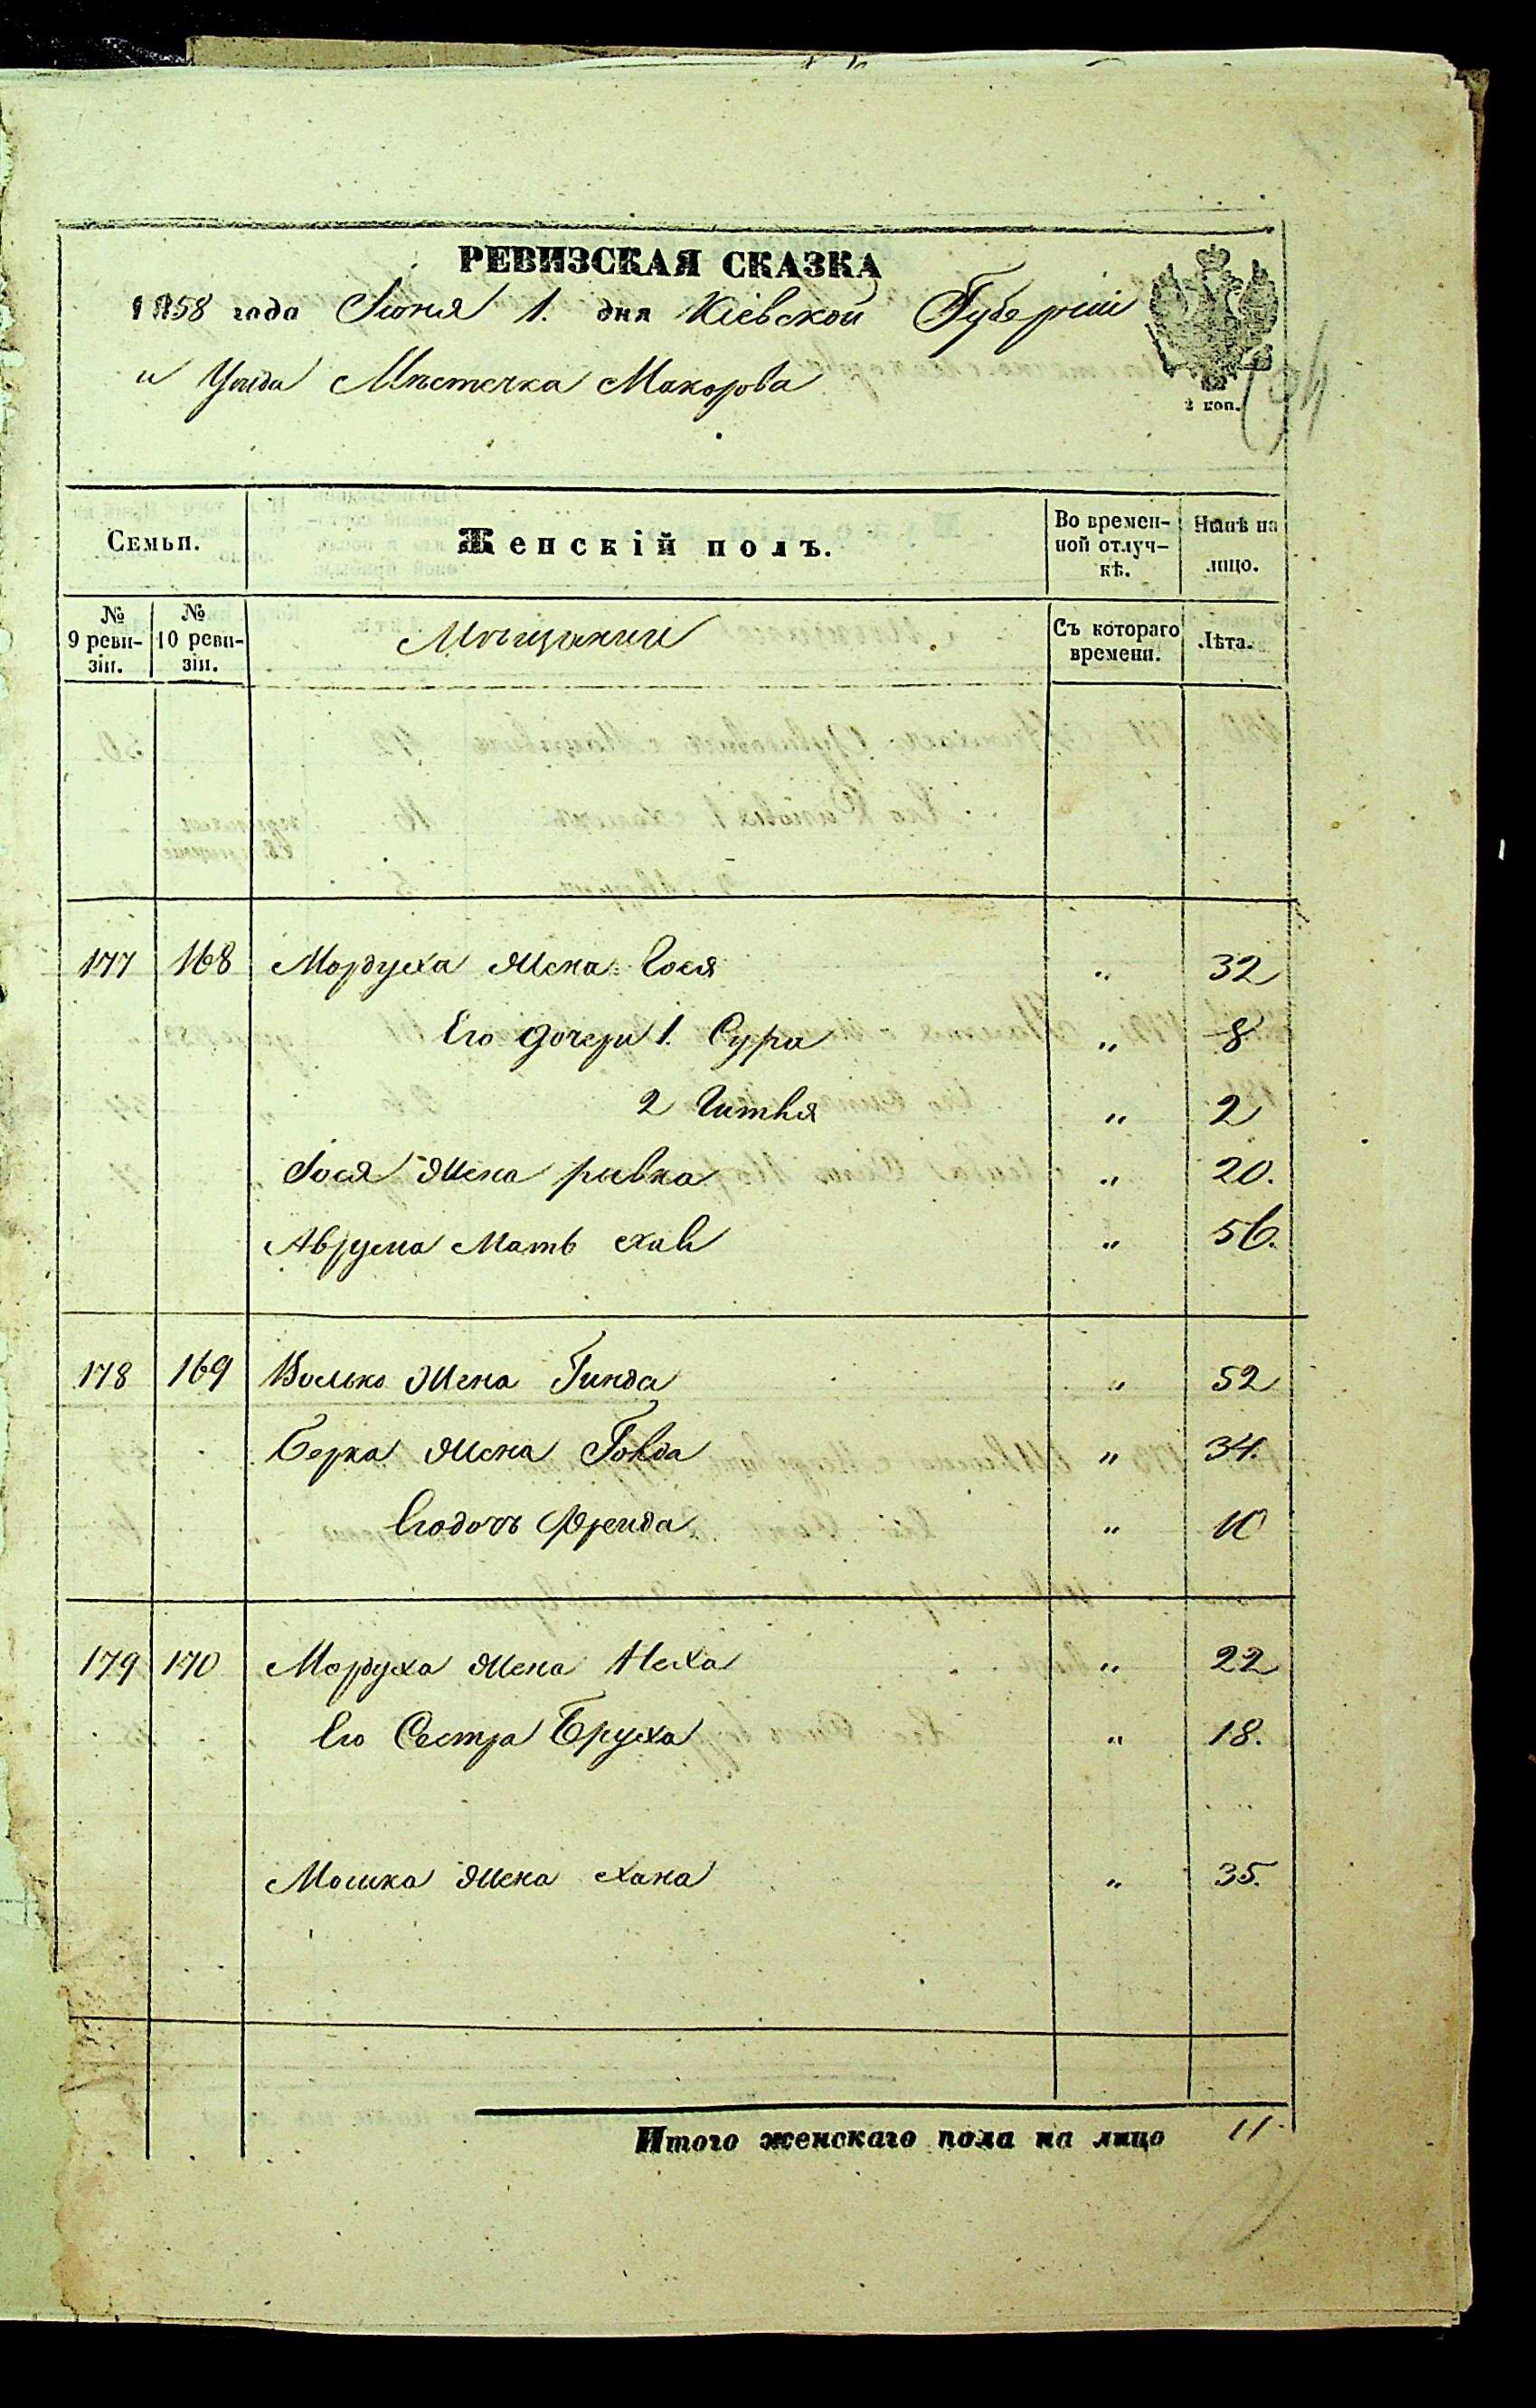 РЕВИЗСКАЯ СКАЗКА
1858 года Июня 1. дня Кіевской Губерніи
и Уезда Мѣстечка Макорова
2 коп.
Семьи. Женскій полъ. Во времен-ной отлуч-кѣ. Нынѣ на лицо.
№ 9 реви-зіи. № 10 реви-зіи. Мѣщянии Съ котораго времени. Лѣта.
177 168 Мордуха Жена Сося " 32
Его дочери 1. Сура " 8
2 Гитля " 2
Іося Жена ривка " 20.
Аврума Мать хая " 56.
178 169 Волько Жена Гинда " 52
Берка Жена Голда " 34.
Его дочь Фрейда " 10
179 170 Мордуха Жена Неха " 22
Его Сестра Бруха " 18.
Мошка Жена хана " 35.
Итого женскаго пола на лицо 11